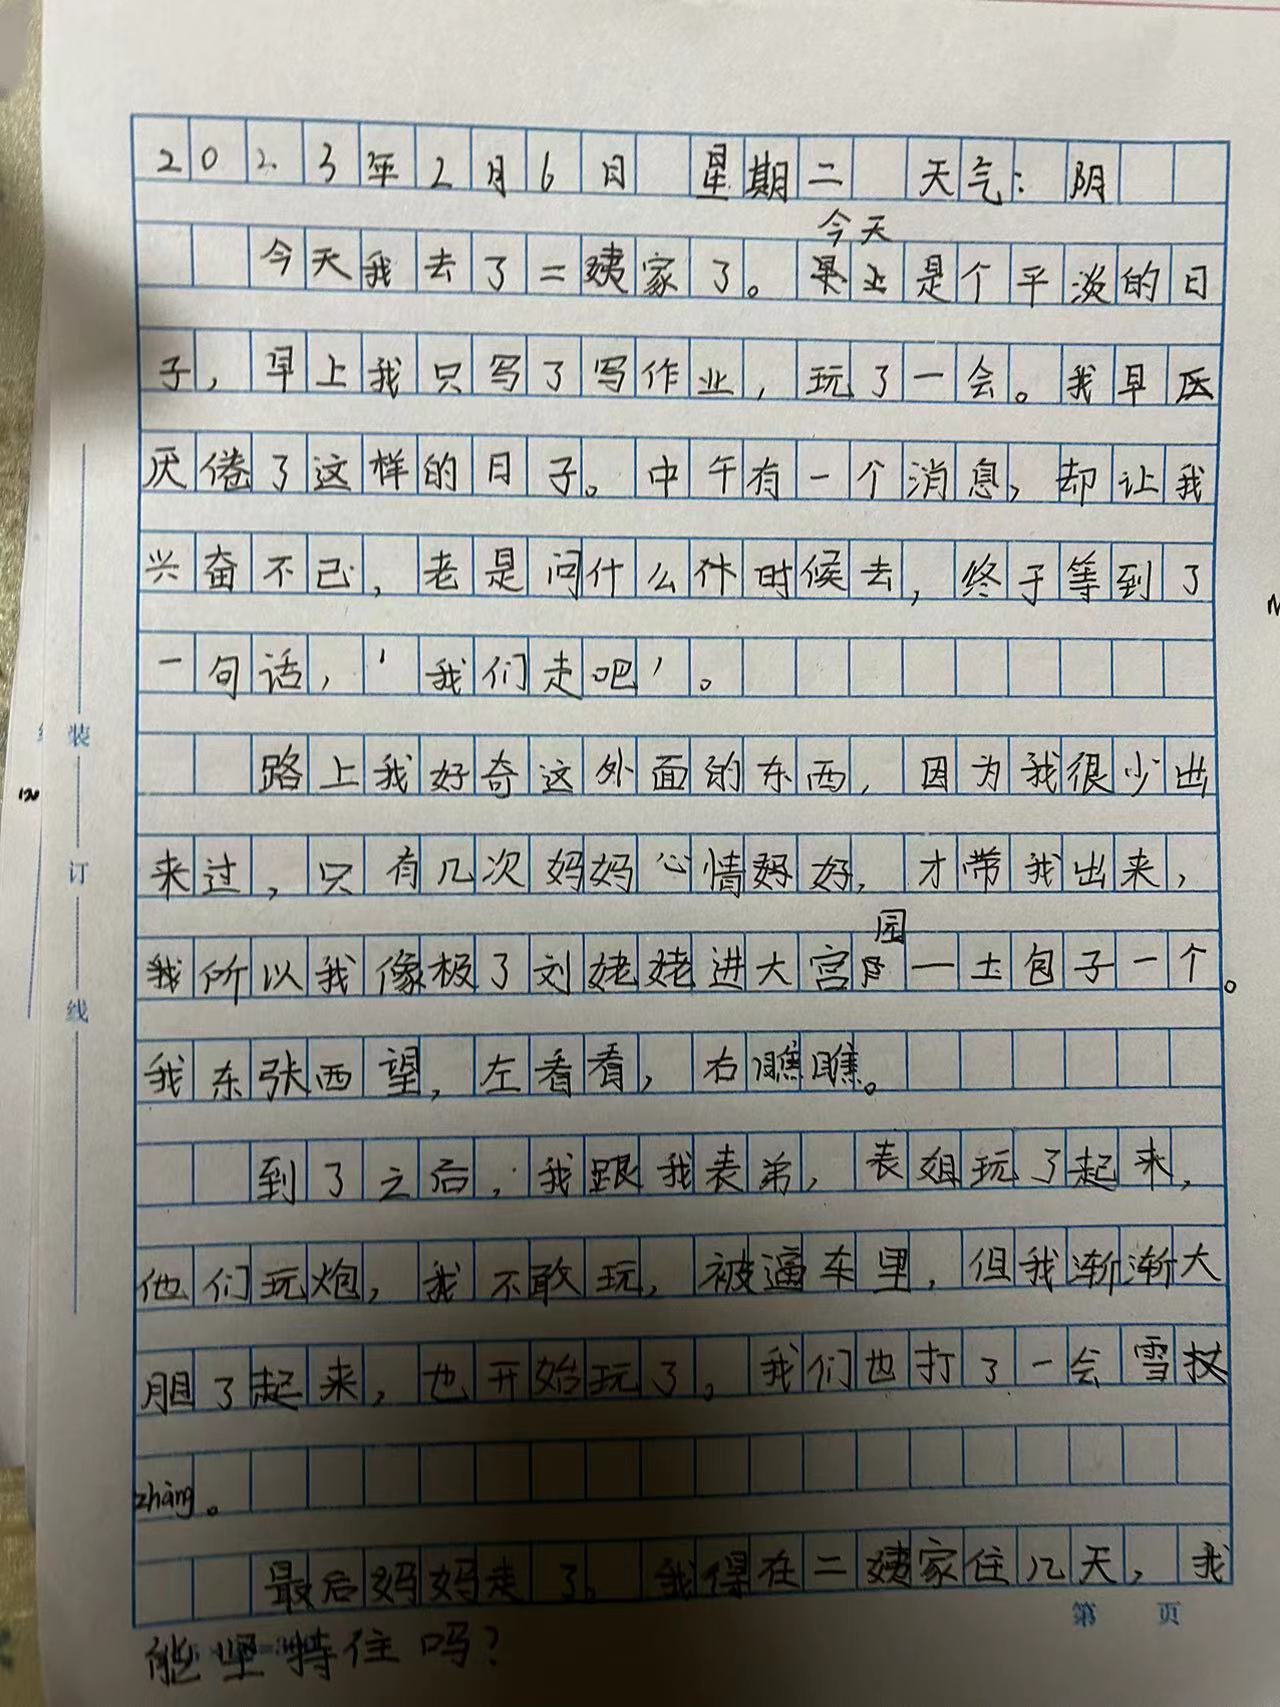 2023年2月6日 星期二 天气：阴
今天
今天我去了二姨家了。是个平淡的日
子，早上我只写了写作业，玩了一会。我早
厌倦了这样的日子。中午有一个消息，却让我
兴奋不己，老是问什么时候去，终于等到了
一句话，'我们走吧'。
路上我好奇这外面的东西，因为我很少出
来过，只有几次妈妈心情好，才带我出来，
园
所以我像极了刘姥姥进大宫—土包子一个。
我东张西望，左看看，右瞧瞧。
到了之后，我跟我表弟，表姐玩了起来，
他们玩炮，我不敢玩，被逼车里，但我渐渐大
胆了起来，也开始玩了。我们也打了一会雪杖
zhàng。
最后妈妈走了。我得在二姨家住几天，我
能坚持住吗？
装
订
线
第 页